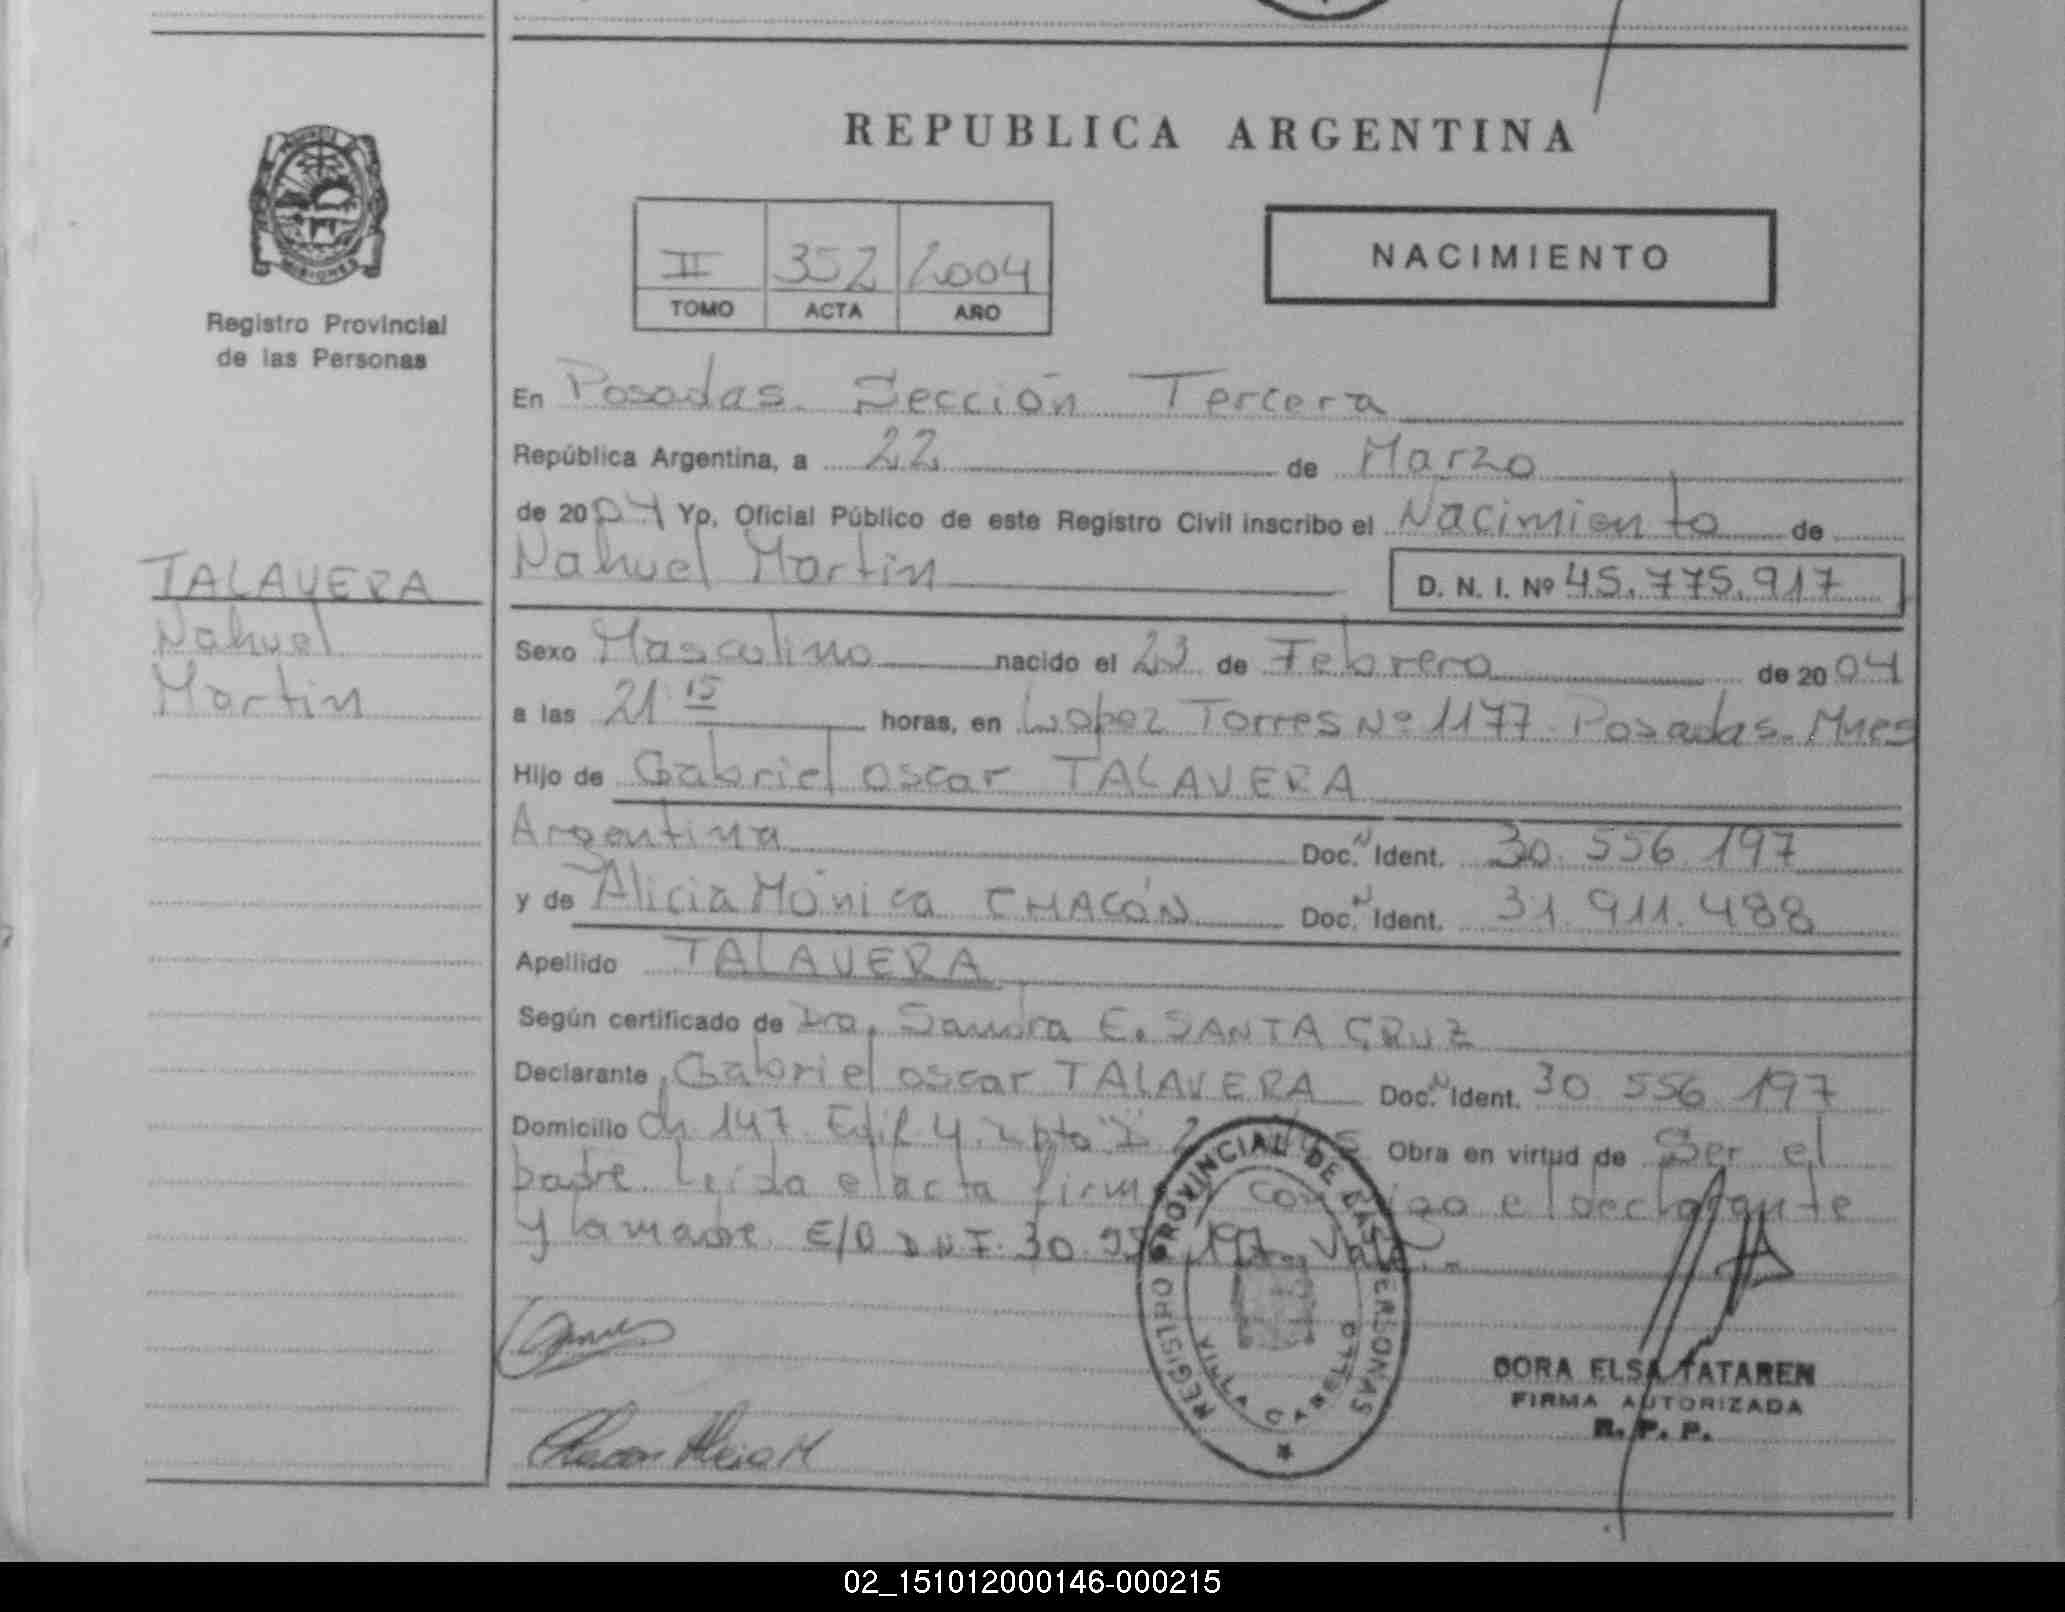 REPUBLICA ARGENTINA
MISIONES
Registro Provincial
de las Personas
II 352 2004
TOMO ACTA AÑO
NACIMIENTO
En Posadas. Sección Tercera
República Argentina, a 22 de Marzo
de 2004 Yo, Oficial Público de este Registro Civil inscribo el Nacimiento de
Nahuel Martin D. N. I. Nº 45.775.917
TALAVERA
Nahuel
Martin
Sexo Masculino nacido el 23 de Febrero de 2004
a las 21 15 horas, en Lopez Torres Nº 1177. Posadas. Mnes
Hijo de Gabriel oscar TALAVERA
Argentina Doc. N Ident. 30. 556. 197
y de Alicia Mónica CHACÓN Doc. N Ident. 31. 911. 488
Apellido TALAVERA
Según certificado de Dra. Sandra E. SANTA CRUZ
Declarante Gabriel oscar TALAVERA Doc. N Ident. 30 556 197
Domicilio Ch 147. Edif 4. Obra en virtud de Ser el
padre. Leída el acta firma conmigo el declarante
y la madre. E/O DNI. 30. 197. Vale.-
REGISTRO PROVINCIAL DE LAS PERSONAS
VILLA CABELLO
Chacon Alicia M
DORA ELSA TATAREN
FIRMA AUTORIZADA
R. P. P.
02_151012000146-000215